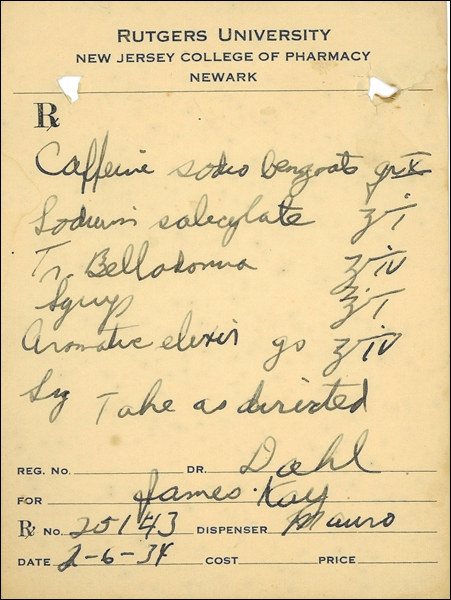 RUTGERS UNIVERSITY
NEW JERSEY COLLEGE OF PHARMACY
NEWARK
℞
Caffeine sodio benzoate gr X
Sodium salicylate ʒ i
Tr. Belladonna ʒ iv
Syrup ʒ i
Aromatic elixir qs ʒ iv
Sig Take as directed
REG. NO. DR. Dahl
FOR James Kay
℞ NO. 25143 DISPENSER Mauro
DATE 2-6-34 COST PRICE